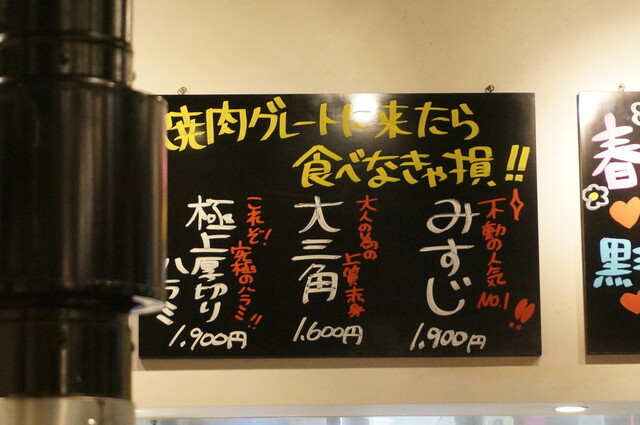 焼肉グレートに来たら
食べなきゃ損!!
不動の人気
No.1
みすじ
1,900円
大人の為の
上質赤身
大三角
1,600円
これぞ!
究極のハラミ!!
極上厚切り
ハラミ
1,900円
春